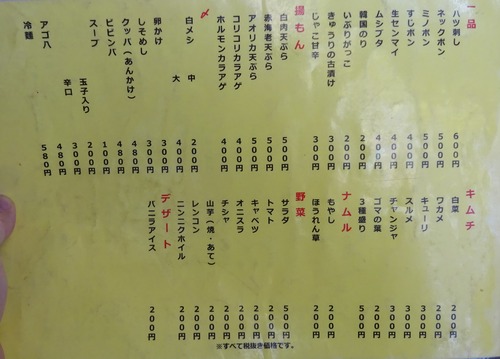 一品
ハツ刺し ６００円
ネックポン ５００円
ミノポン ５００円
すじポン ４００円
生センマイ ４００円
ムシブタ ４００円
韓国のり ２００円
いぶりがっこ ２００円
きゅうりの古漬け ３００円
じゃこ甘辛 ３００円
揚もん
白肉天ぷら ５００円
赤海老天ぷら ５００円
アオリカ天ぷら ５００円
コリコリカラアゲ ４００円
ホルモンカラアゲ ４００円
〆
白メシ 中 ２００円
大 ４００円
卵かけ ３００円
しそめし ３００円
クッパ（あんかけ） ４８０円
ビビンバ ４８０円
スープ １００円
玉子入り ２００円
辛口 ３００円
アゴ八
冷麺 ５８０円
キムチ
白菜 ２００円
ワカメ ２００円
キューリ ３００円
スルメ ３００円
チャンジャ ３００円
ゴマの葉 ３００円
３種盛り ５００円
ナムル
もやし ２００円
ほうれん草 ２００円
野菜
サラダ ５００円
トマト ２００円
キャベツ ２００円
オニスラ ２００円
チシャ ２００円
山芋（焼・あて） ２００円
レンコン ２００円
ニンニクホイル ２００円
デザート
バニラアイス ２００円
※すべて税抜き価格です。